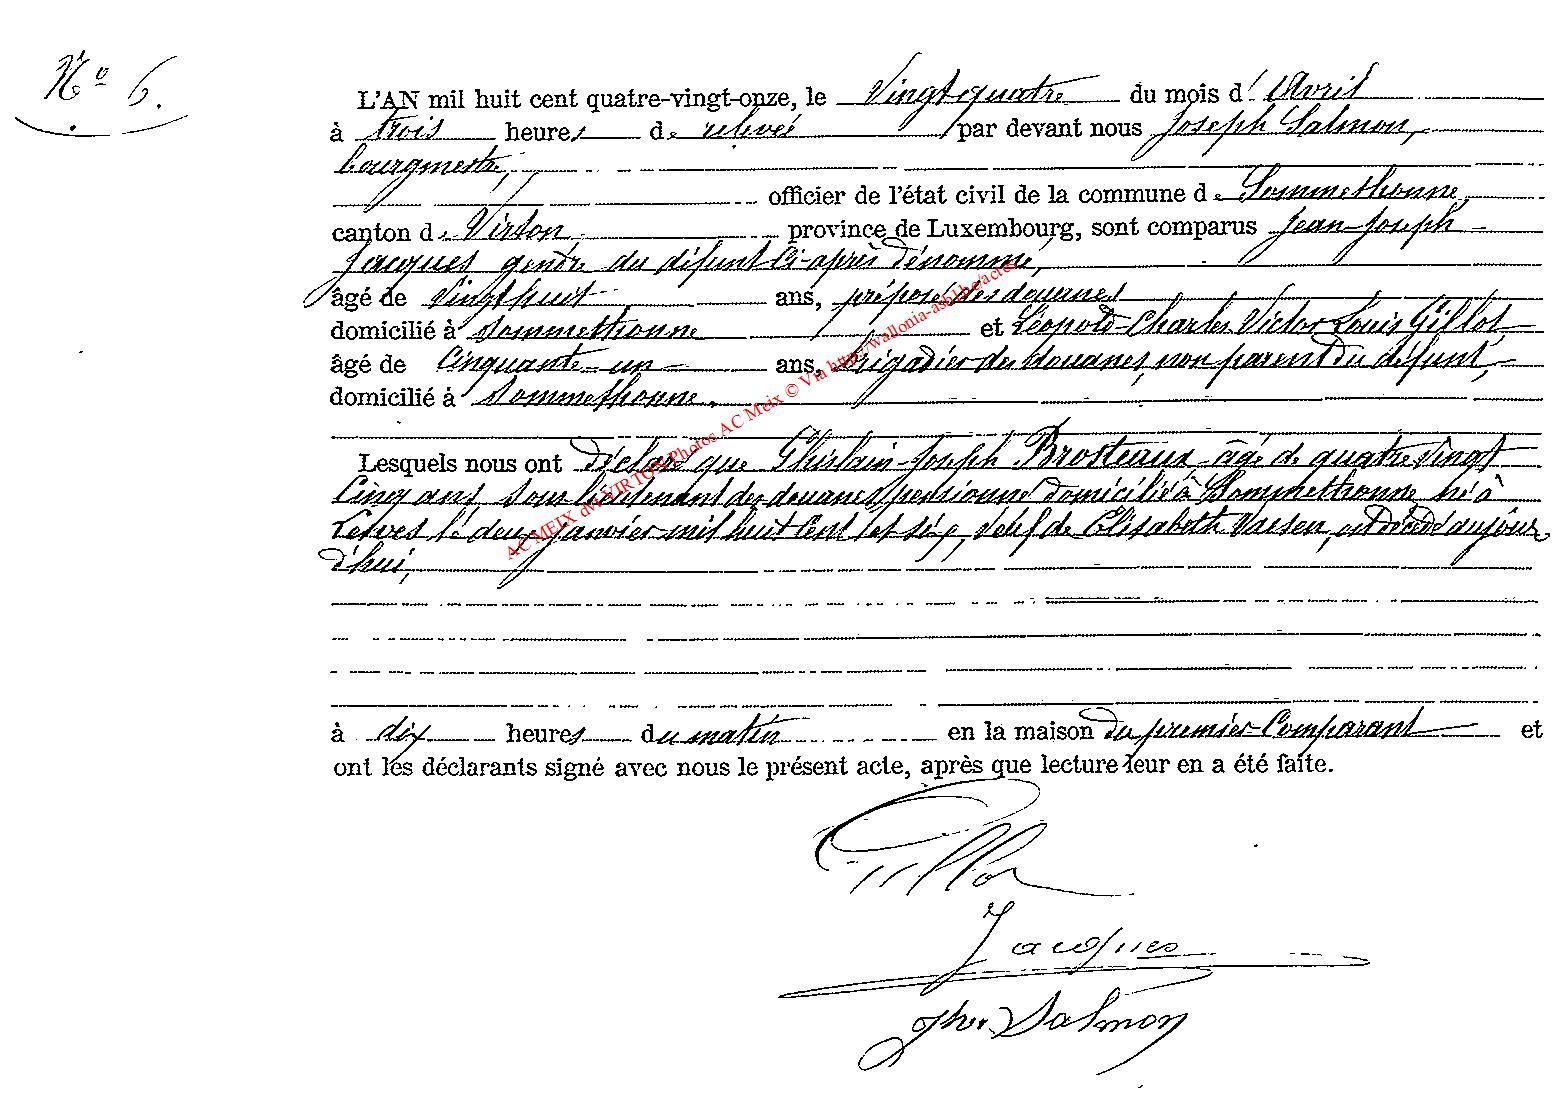 N° 6.
L'AN mil huit cent quatre-vingt-onze, le Vingt-quatre du mois d'Avril
à trois heures de relevée par devant nous Joseph Salmon,
bourgmestre,
officier de l'état civil de la commune de Sommethonne,
canton de Virton province de Luxembourg, sont comparus Jean-Joseph
Jacques, gendre du défunt ci-après dénommé,
âgé de Vingt huit ans, préposé des douanes
domicilié à Sommethonne et Léopold-Charles Victor Louis Gillot,
âgé de Cinquante-un ans, brigadier des douanes, non parent du défunt,
domicilié à Sommethonne.
Lesquels nous ont déclaré que Ghislain-Joseph Brosteaux âgé de quatre vingt
Cinq ans, sous lieutenant des douanes pensionné domicilié à Sommethonne né à
le deux Janvier mil huit cent et six, veuf de Elisabeth est décédé aujour
d'hui,
à dix heures du matin en la maison du premier Comparant et
ont les déclarants signé avec nous le présent acte, après que lecture leur en a été faite.
Gillot
Jacques
Jph. Salmon
AC MEIX dvt VIRTON Photos AC Meix © Via http://wallonia-asbl.be/actes